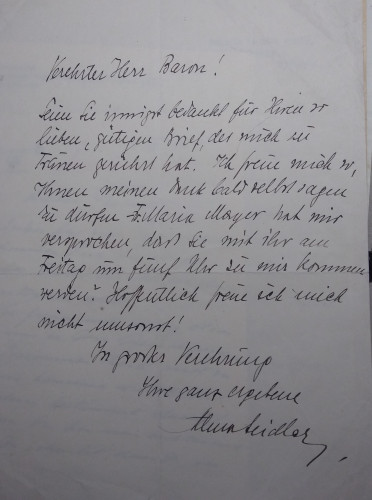 Verehrter Herr Baron!
Seien Sie innigst bedankt für Ihren so
lieben, gütigen Brief, der mich zu
Tränen gerührt hat. Ich freue mich so,
Ihnen meinen Dank bald selbst sagen
zu dürfen. Maria Mayer hat mir
versprochen, dass Sie mit ihr am
Freitag um fünf Uhr zu mir kommen
werden. Hoffentlich freue ich mich
nicht umsonst!
In großer Verehrung
Ihre ganz ergebene
Alma Seidler